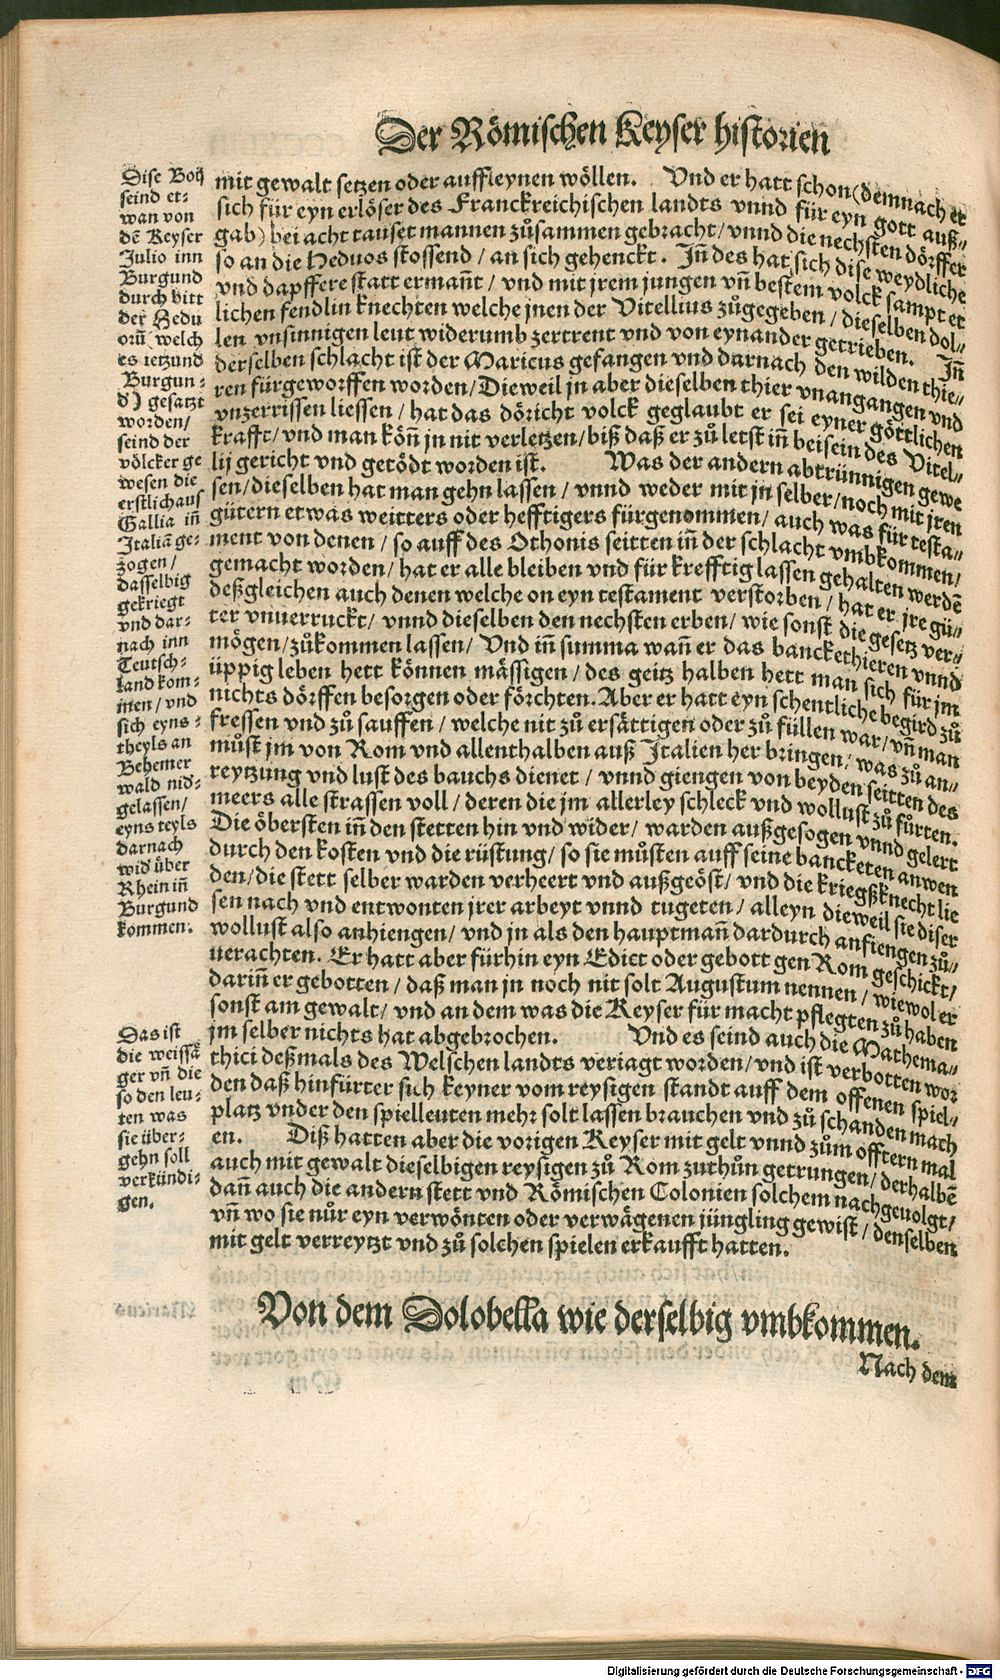 Der Römischen Keyser historien
Dise Boij
seind et⸗
wan von
dē Keyser
Julio inn
Burgund
durch bitt
der Hedu
orū welch
es ietzund
Burgun⸗
d) gesatzt
worden/
seind der
völcker ge
wesen die
erstlich aus
Gallia iñ
Italiā ge⸗
zogen/
dasselbig
gekriegt
vnd dar⸗
nach inn
Teutsch⸗
land kom⸗
men/vnd
sich eyns⸗
theyls an
Behemer
wald nid⸗
gelassen/
eyns teyls
darnach
wid über
Rhein iñ
Burgund
kommen.
Das ist
die weissā
ger vñ die
so den leu⸗
ten was
sie über⸗
gehn soll
verkündi⸗
gen.
mit gewalt setzen oder auffleynen wöllen. Vnd er hatt schon (demnach er
sich für eyn erlöser des Franckreichischen landts vnnd für eyn gott auß⸗
gab) bei acht tauset mannen zůsammen gebracht/ vnnd die nechsten dörffer
so an die Heduos stossend/ an sich gehenckt. Iñ des hat sich dise weydliche
vnd dapffere statt ermañt/ vnd mit jrem jungen vñ bestem volck sampt et
lichen fendlin knechten welche jnen der Vitellius zůgegeben/ dieselben dol⸗
len vnsinnigen leut widerumb zertrent vnd von eynander getrieben. Iñ
derselben schlacht ist der Maricus gefangen vnd darnach den wilden thie⸗
ren fürgeworffen worden/ Dieweil jn aber dieselben thier vnangangen vnd
vnzerrissen liessen/ hat das döricht volck geglaubt er sei eyner göttlichen
krafft/ vnd man köñ jn nit verletzen/ biß daß er zů letst iñ beisein des Vitel⸗
lij gericht vnd getödt worden ist. Was der andern abtrünnigen gewe
sen/ dieselben hat man gehn lassen/ vnnd weder mit jn selber/ noch mit jren
gütern etwas weitters oder hefftigers fürgenommen/ auch was für testa⸗
ment von denen/ so auff des Othonis seitten iñ der schlacht vmbkommen/
gemacht worden/ hat er alle bleiben vnd für krefftig lassen gehalten werdē
deßgleichen auch denen welche on eyn testament verstorben/ hat er jre gü⸗
ter vnuerruckt/ vnnd dieselben den nechsten erben/ wie sonst die gesetz ver⸗
mögen/ zůkommen lassen/ Vnd iñ summa wañ er das banckethieren vnnd
üppig leben hett können mässigen/ des geitz halben hett man sich für jm
nichts dörffen besorgen oder förchten. Aber er hatt eyn schentliche begird zů
fressen vnd zů sauffen/ welche nit zů ersättigen oder zů füllen war/ vñ man
můst jm von Rom vnd allenthalben auß Italien her bringen/ was zů an⸗
reytzung vnd lust des bauchs dienet/ vnnd giengen von beyden seitten des
meers alle strassen voll/ deren die jm allerley schleck vnd wollust zů fůrten.
Die öbersten iñ den stetten hin vnd wider/ warden außgesogen vnnd gelert
durch den kosten vnd die rüstung/ so sie můsten auff seine bancketen anwen
den/ die stett selber warden verheert vnd außgeöst/ vnd die kriegßknecht lie
sen nach vnd entwonten jrer arbeyt vnnd tugeten/ alleyn dieweil sie diser
wollust also anhiengen/ vnd jn als den hauptmañ dardurch anfiengen zů⸗
uerachten. Er hatt aber fürhin eyn Edict oder gebott gen Rom geschickt/
dariñ er gebotten/ daß man jn noch nit solt Augustum nennen/ wiewol er
sonst am gewalt/ vnd an dem was die Keyser für macht pflegten zů haben
jm selber nichts hat abgebrochen. Vnd es seind auch die Mathema⸗
thici deßmals des Welschen landts veriagt worden/ vnd ist verbotten wor
den daß hinfürter sich keyner vom reysigen standt auff dem offenen spiel⸗
platz vnder den spielleuten mehr solt lassen brauchen vnd zů schanden mach
en. Diß hatten aber die vorigen Keyser mit gelt vnnd zům offtern mal
auch mit gewalt dieselbigen reysigen zů Rom zuthůn getrungen/ derhalbē
dañ auch die andern stett vnd Römischen Colonien solchem nachgeuolgt/
vñ wo sie nůr eyn verwönten oder verwägenen jüngling gewist/ denselben
mit gelt verreytzt vnd zů solchen spielen erkaufft hatten.
Von dem Dolobella wie derselbig vmbkommen.
Nach dem
Digitalisierung gefördert durch die Deutsche Forschungsgemeinschaft - DFG